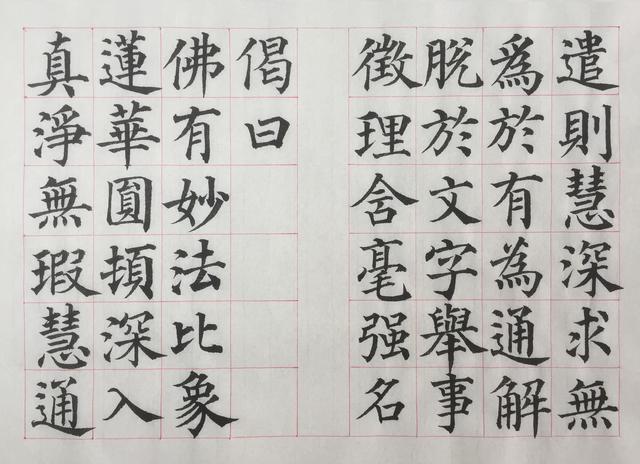 遣則慧深求無
爲於有為通解
脫於文字舉事
徵理含毫强名
偈曰
佛有妙法比象
蓮華圓頓深入
真淨無瑕慧通